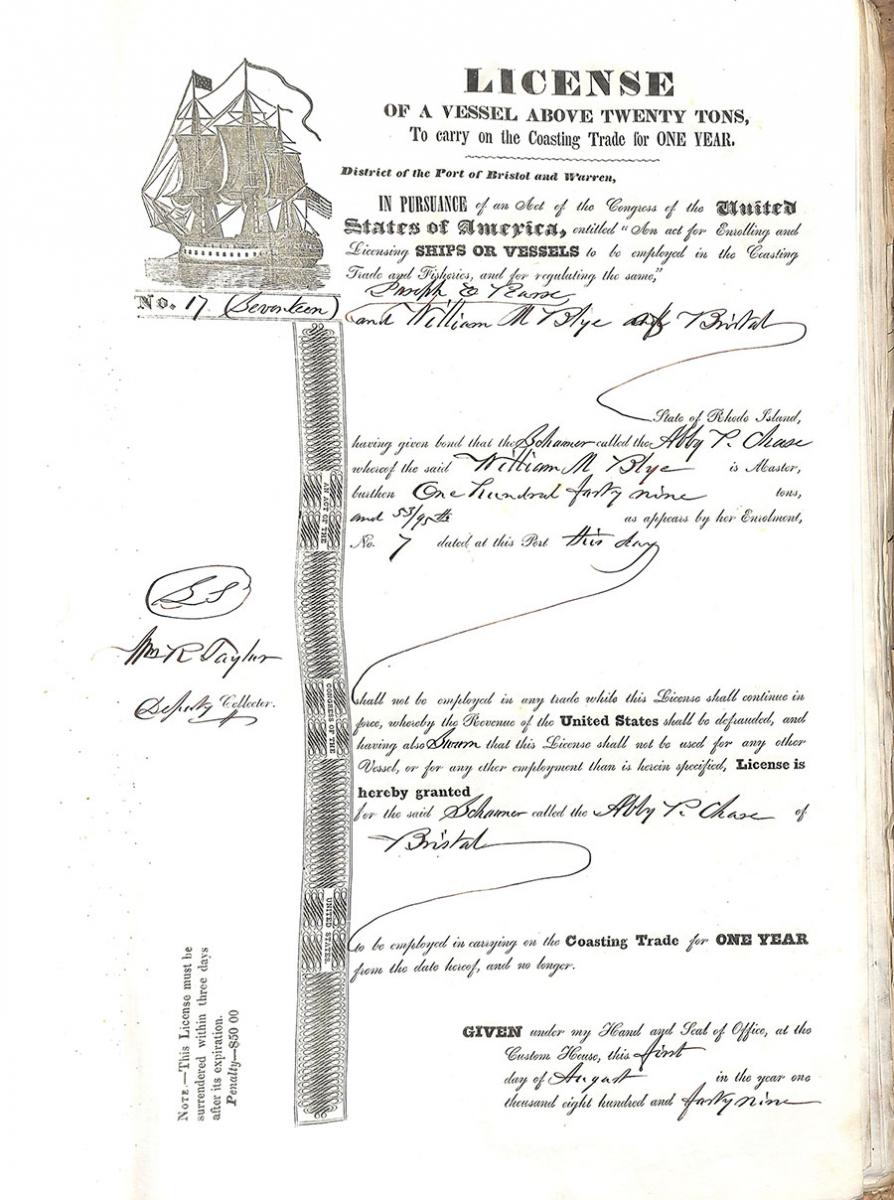 LICENSE
OF A VESSEL ABOVE TWENTY TONS,
To carry on the Coasting Trade for ONE YEAR.
District of the Port of Bristol and Warren,
IN PURSUANCE of an Act of the Congress of the United
States of America, entitled "An act for Enrolling and
Licensing SHIPS OR VESSELS to be employed in the Coasting
Trade and Fisheries, and for regulating the same,"
No. 17 (Seventeen)
Joseph E
and William M Blye of Bristol
State of Rhode Island,
having given bond that the Schooner called the Abby P. Chase
whereof the said William M Blye is Master,
burthen One hundred forty nine tons,
and 53/95th as appears by her Enrolment,
No. 7 dated at this Port this day
AN ACT OF THE
LS
Wm R Taylor
Deputy Collector.
shall not be employed in any trade while this License shall continue in
force, whereby the Revenue of the United States shall be defrauded, and
having also Sworn that this License shall not be used for any other
Vessel, or for any other employment than is herein specified, License is
hereby granted
CONGRESS OF THE
for the said Schooner called the Abby P. Chase of
Bristol
UNITED STATES.
to be employed in carrying on the Coasting Trade for ONE YEAR
from the date hereof, and no longer.
NOTE.—This License must be
surrendered within three days
after its expiration.
Penalty—$50 00
GIVEN under my Hand and Seal of Office, at the
Custom House, this first
day of August in the year one
thousand eight hundred and forty nine